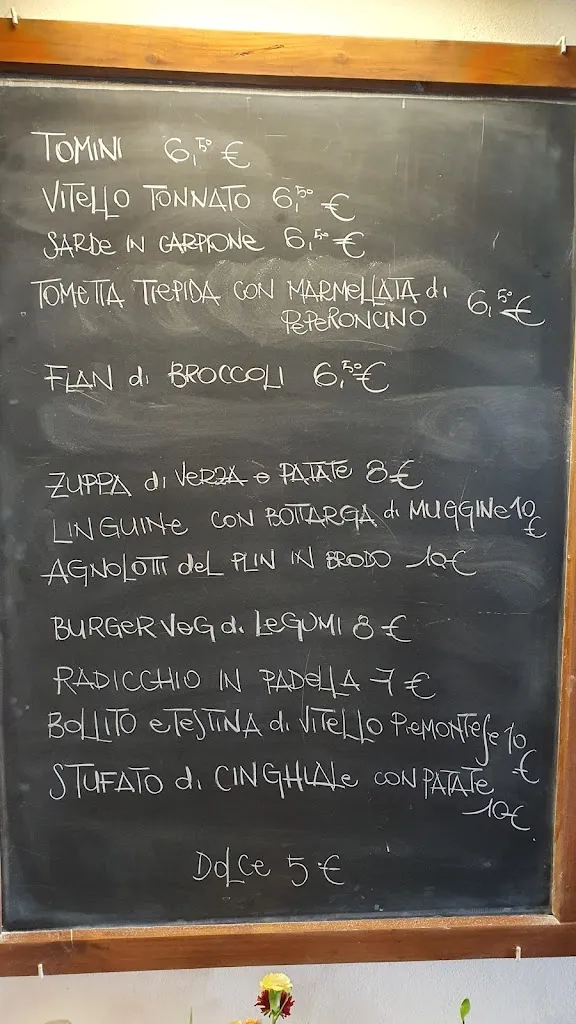 TOMINI 6,50 €
VITELLO TONNATO 6,50 €
SARDE IN CARPIONE 6,50 €
TOMETTA TIEPIDA CON MARMELLATA di 6,50 €
PEPERONCINO
FLAN di BROCCOLI 6,50 €
ZUPPA di VERZA e PATATE 8 €
LINGUINE CON BOTTARGA di MUGGINE 10 €
AGNOLOTTI del PLIN IN BRODO 10 €
BURGER VEG di LEGUMI 8 €
RADICCHIO IN PADELLA 7 €
BOLLITO e TESTINA di VITELLO PIEMONTESE 10 €
STUFATO di CINGHIALE CON PATATE
10 €
DOLCE 5 €